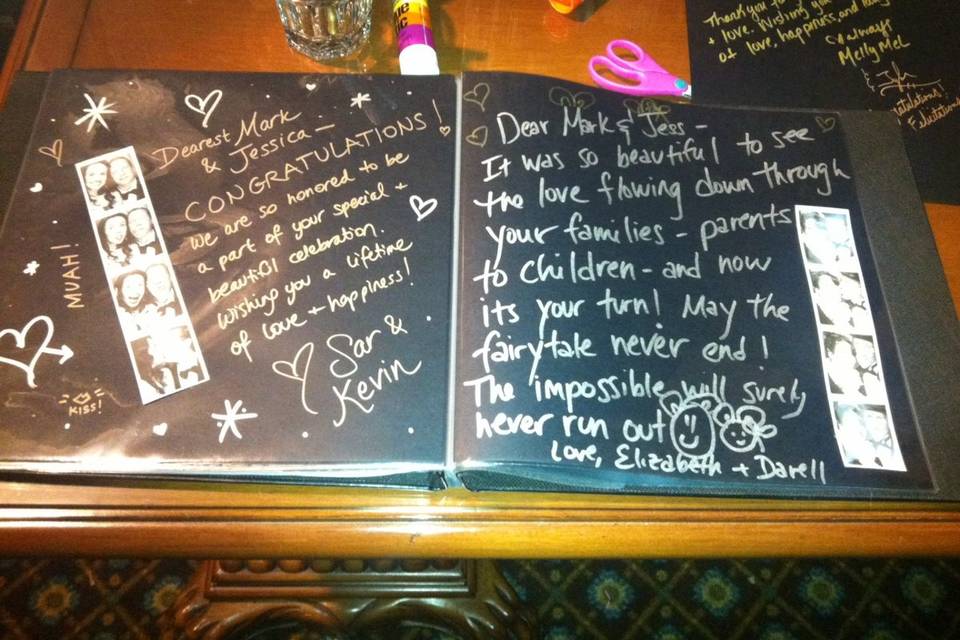 Dearest Mark
& Jessica -
CONGRATULATIONS!
We are so honored to be
a part of your special +
beautiful celebration.
Wishing you a lifetime
of love + happiness!
Sar &
Kevin
MUAH!
KISS!
Dear Mark & Jess -
It was so beautiful to see
the love flowing down through
your families - parents
to children - and now
its your turn! May the
fairytale never end!
The impossible will surely
never run out
Love, Elizabeth + Darell
Thank you
+ love. Wishing you
of love, happiness, and
always
MellyMel